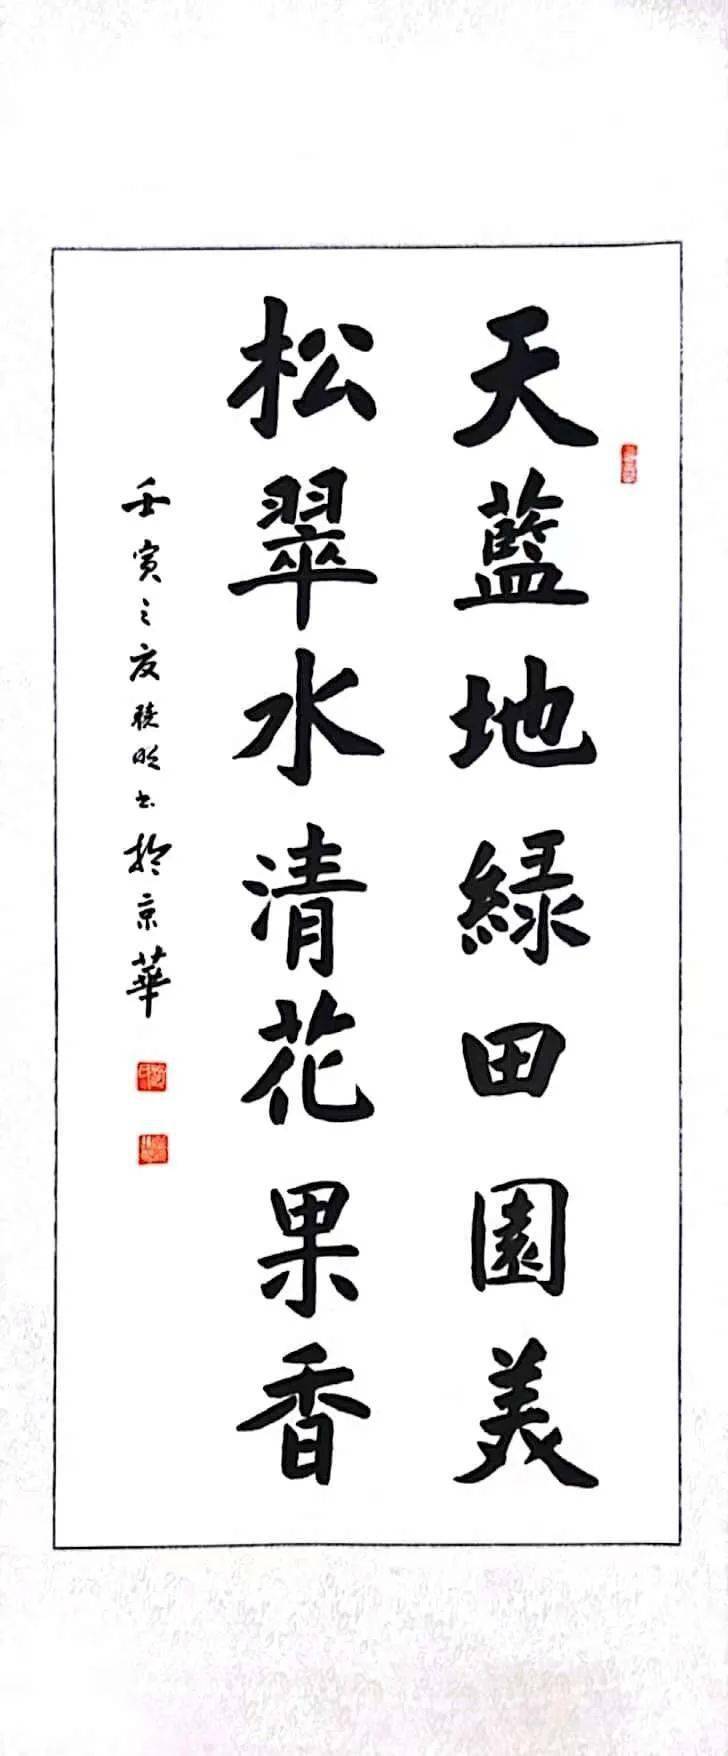 天藍地緑田園美
松翠水清花果香
壬寅之夏 明书於京華